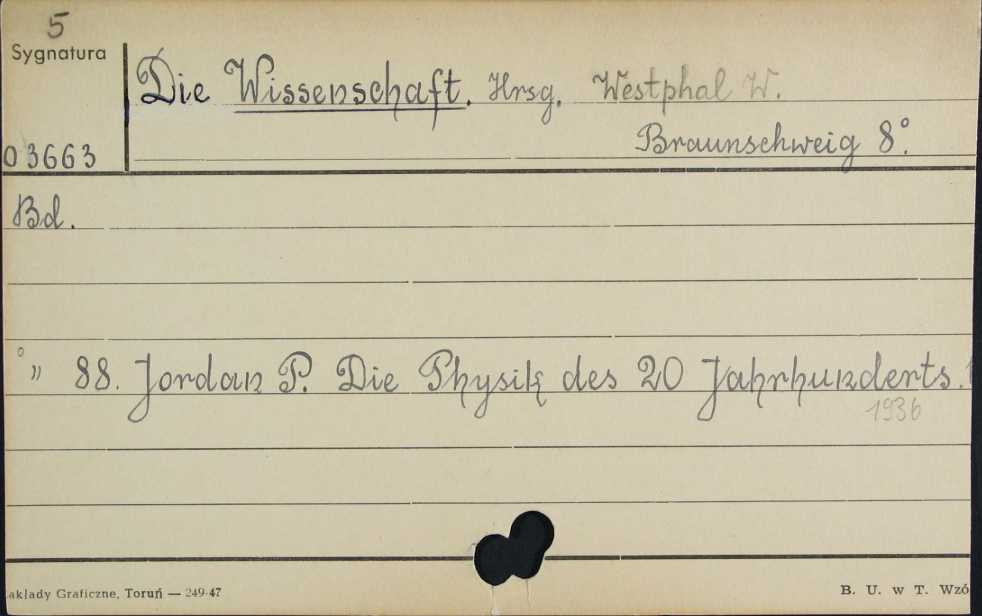 5
Sygnatura
Die Wissenschaft. Hrsg. Westphal W.
Braunschweig 8°.
03663
Bd.
„ 88. Jordan P. Die Physik des 20 Jahrhunderts.
1936
akłady Graficzne, Toruń — 249-47
B. U. w T. Wzó